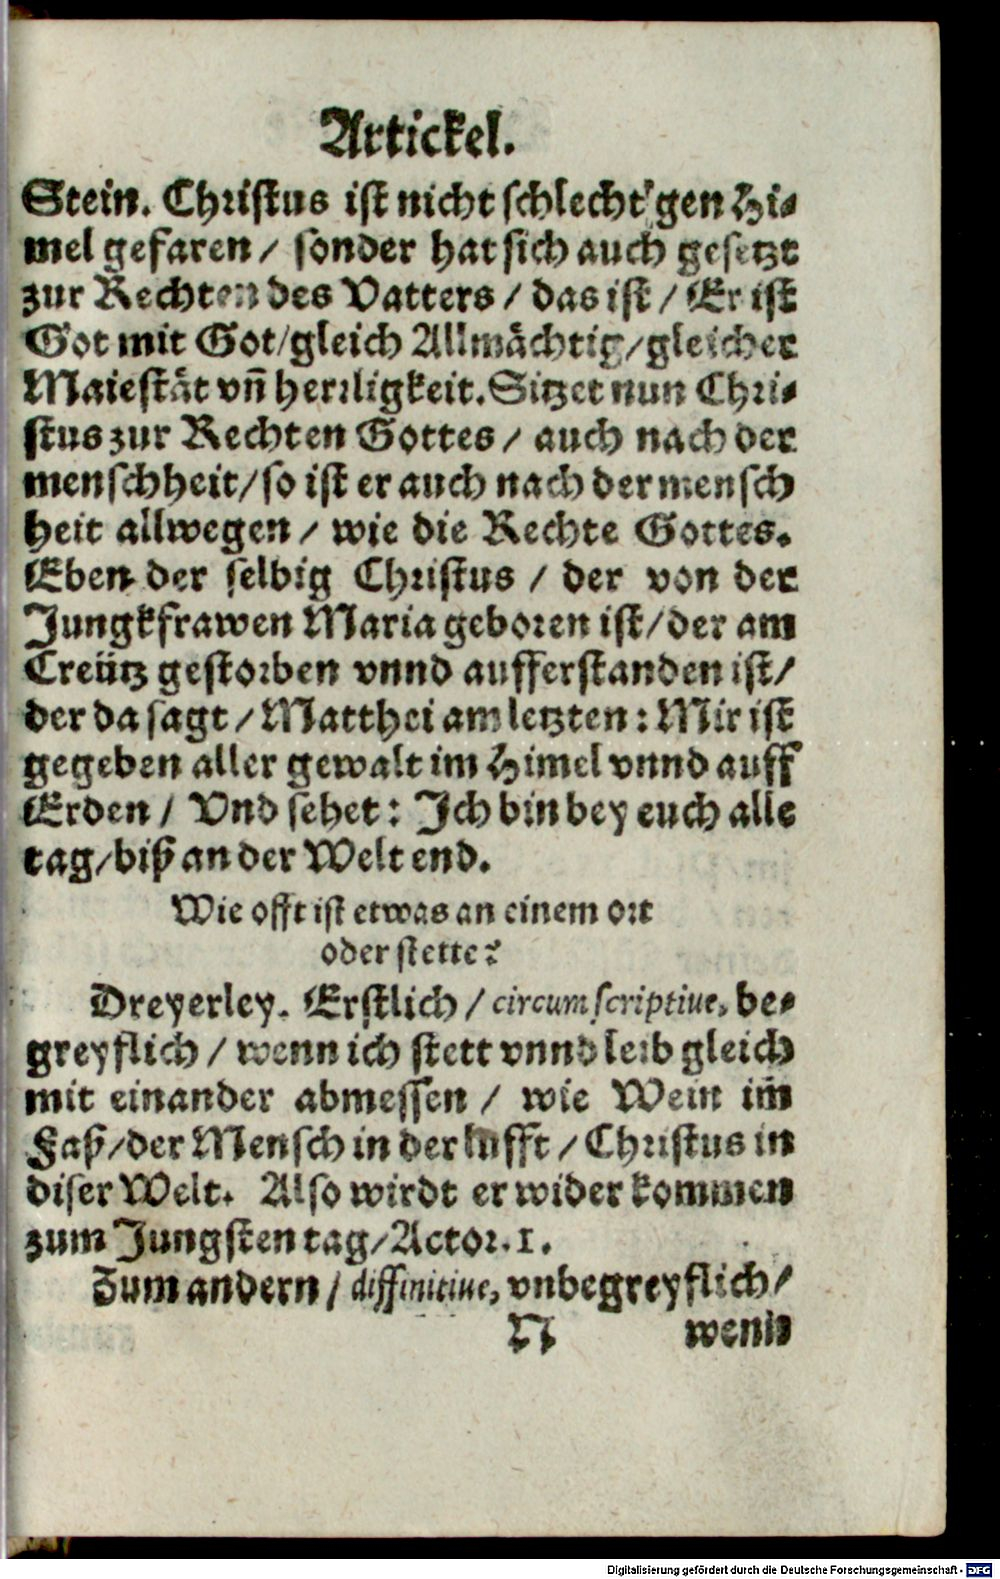 Artickel.
Stein. Christus ist nicht schlecht gen Hi-
mel gefaren / sonder hat sich auch gesetzt
zur Rechten des Vatters / das ist / Er ist
Got mit Got/gleich Allmächtig/gleicher
Maiestät vñ herrligkeit. Sitzet nun Chri-
stus zur Rechten Gottes / auch nach der
menschheit/so ist er auch nach der mensch
heit allwegen / wie die Rechte Gottes.
Eben der selbig Christus / der von der
Jungkfrawen Maria geboren ist/der am
Creütz gestorben vnnd aufferstanden ist/
der da sagt / Matthei am letzten: Mir ist
gegeben aller gewalt im Himel vnnd auff
Erden / Vnd sehet: Ich bin bey euch alle
tag/biß an der Welt end.
Wie offt ist etwas an einem ort
oder stette?
Dreyerley. Erstlich / circumscriptiue, be-
greyflich / wenn ich stett vnnd leib gleich
mit einander abmessen / wie Wein im
Faß/der Mensch in der lufft / Christus in
diser Welt. Also wirdt er wider kommen
zum Jungsten tag/Actor.1.
Zum andern / diffinitiue, vnbegreyflich/
N wenn
Digitalisierung gefördert durch die Deutsche Forschungsgemeinschaft - DFG